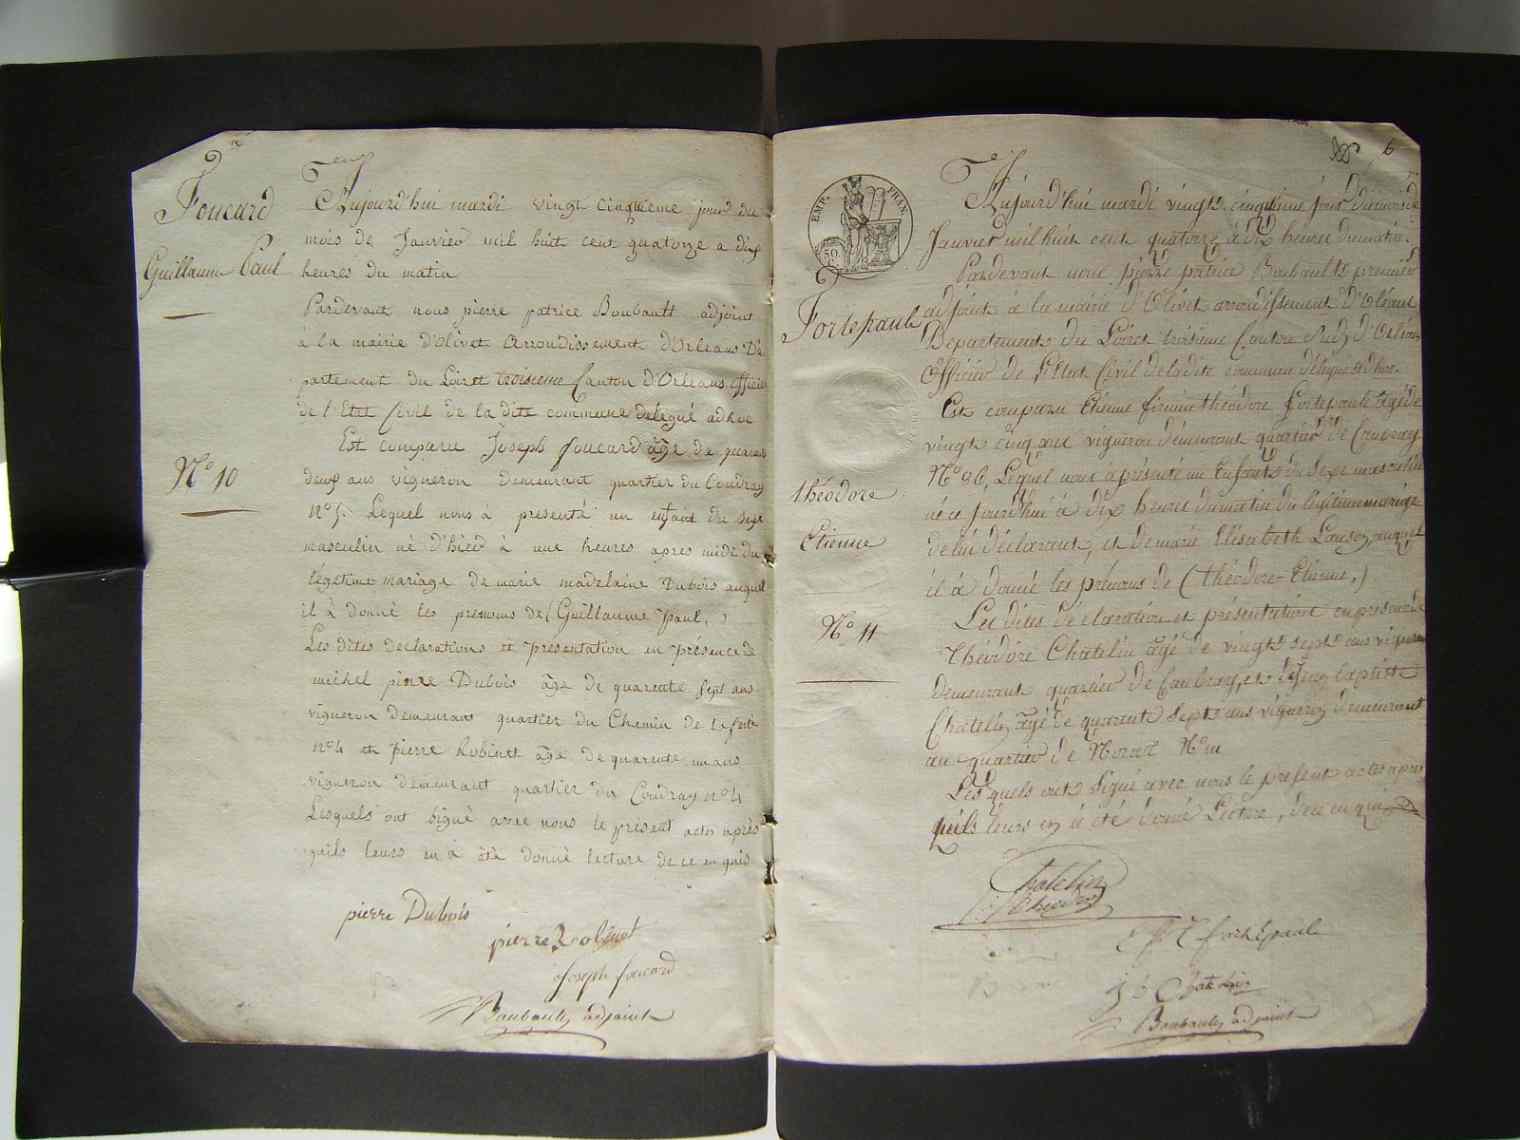 Foucard
Guillaume Paul
N° 10
Aujourd'hui mardi vingt cinquieme jour du
mois de Janvier mil huit cent quatorze a dix
heures du matin
Pardevant nous pierre patrice Boubault adjoint
à la mairie d'Olivet Arrondissement d'Orleans De
partement du Loiret troisieme Canton d'Orleans officier
de l'Etat Civil de la dite commune delegué adhoc
Est comparu Joseph foucard âgé de quarante
deux ans vigneron demeurant quartier du Coudray
n° 5. Lequel nous à presenté un enfant du sexe
masculin né d'hier à une heures apres midi du
légitime mariage de marie madelaine Dubois auquel
il à donné les prenoms de (Guillaume paul.)
Les dites declarations et presentation en présence de
michel pierre Dubois âgé de quarente sept ans
vigneron demeurant quartier du Chemin de la ferté
n° 4 et pierre Robinet âgé de quarente un ans
vigneron demeurant quartier du Coudray n° 4
Lesquels ont signé avec nous le présent acte après
quils leurs en à été donné lecture de ce enquis
pierre Dubois
pierre Robinet
Joseph foucard
Boubault adjoint
6
EMP. FRAN.
50
Fortepaule
théodore
Etienne
N° 11
Aujourd'hui mardi vingt cinquieme jour du mois de
Janvier mil huit cent quatorze à dix heures du matin.
Pardevant nous pierre patrice Boubault premier
adjoint à la mairie d'Olivet arrondissement d'Orléans
Departement du Loiret troisieme Canton Sud d'Orléans
Officier de l'Etat Civil de la dite commune délégué adhoc.
Est comparu Etienne firmin théodore fortepaule âgé de
vingt cinq ans vigneron démeurant quartier de Caubray
N° 96, Lequel nous à présenté un Enfant du sexe masculin
né ce jourd'hui à dix heures du matin du légitime mariage
de lui déclarant, et de marie Elisabeth auquel
il à donné les prénoms de (théodore-Etienne,)
Les dites déclaration et présentation en presence de
théodore Chatelin âgé de vingt sept ans vigneron
demeurant quartier de Caubray, et de Jean baptiste
Chatelin âgé de quarente sept ans vigneron demeurant
au quartier de N°
Les quels ont signé avec nous le present acte apres
quils leurs en à été donné Lecture, de ce enquis
Chatelin
Théodore
E f T fortEpaul
J b Chatelin
Boubault adjoint